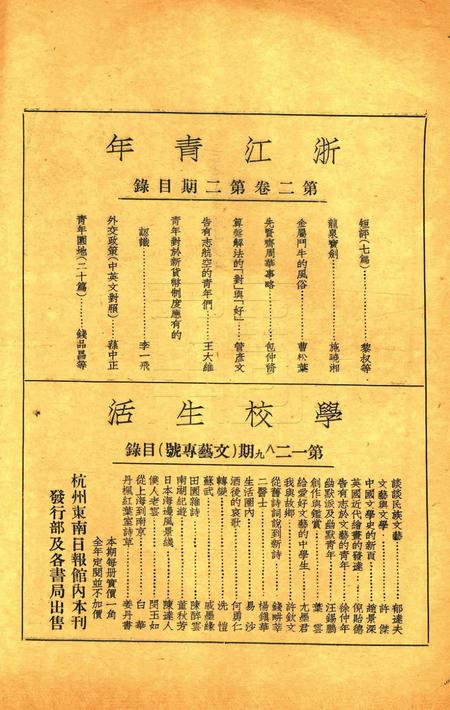 浙江青年
第二卷第二期目錄
短評(七篇)……黎叔等
龍泉寶劍……施曉湘
金屬鬥牛的風俗……曹松葉
先賢齊周華事略……包仲修
算盤解法的「對」與「好」……管彥文
告有志航空的青年們……王大維
青年對於新貨幣制度應有的
認識……李一飛
外交政策(中英文對照)……蔣中正
青年園地(二十篇)……錢品昌等
學校生活
第一二八九期(文藝專號)目錄
談談民族文藝……郁達夫
文藝與文學……許傑
中國文學史的新頁……趙景深
英國近代繪畫的發達……倪貽德
告有志於文藝的青年……徐仲年
幽默派及幽默青年……汪錫鵬
創作與鑑賞……葉雲
給愛好文藝的中學生……尤墨君
我與故鄉……許欽文
從舊詩詞說到新詩……錢畊莘
二醫士……楊鎮華
生活圈內……易沙
酒後的哀歌……何勇仁
轉變……冼愷
蘇武……戚墨緣
田園雜詩……陳醉雲
南湖紀遊……董秋芳
日本海邊風景綫……陳達人
僕人老雲……閔玉如
從上海到南京……白華
丹楓紅葉室詩草……姜丹書
本期每册實價一角
全年定閱並不加價
杭州東南日報館內本刊
發行部及各書局出售